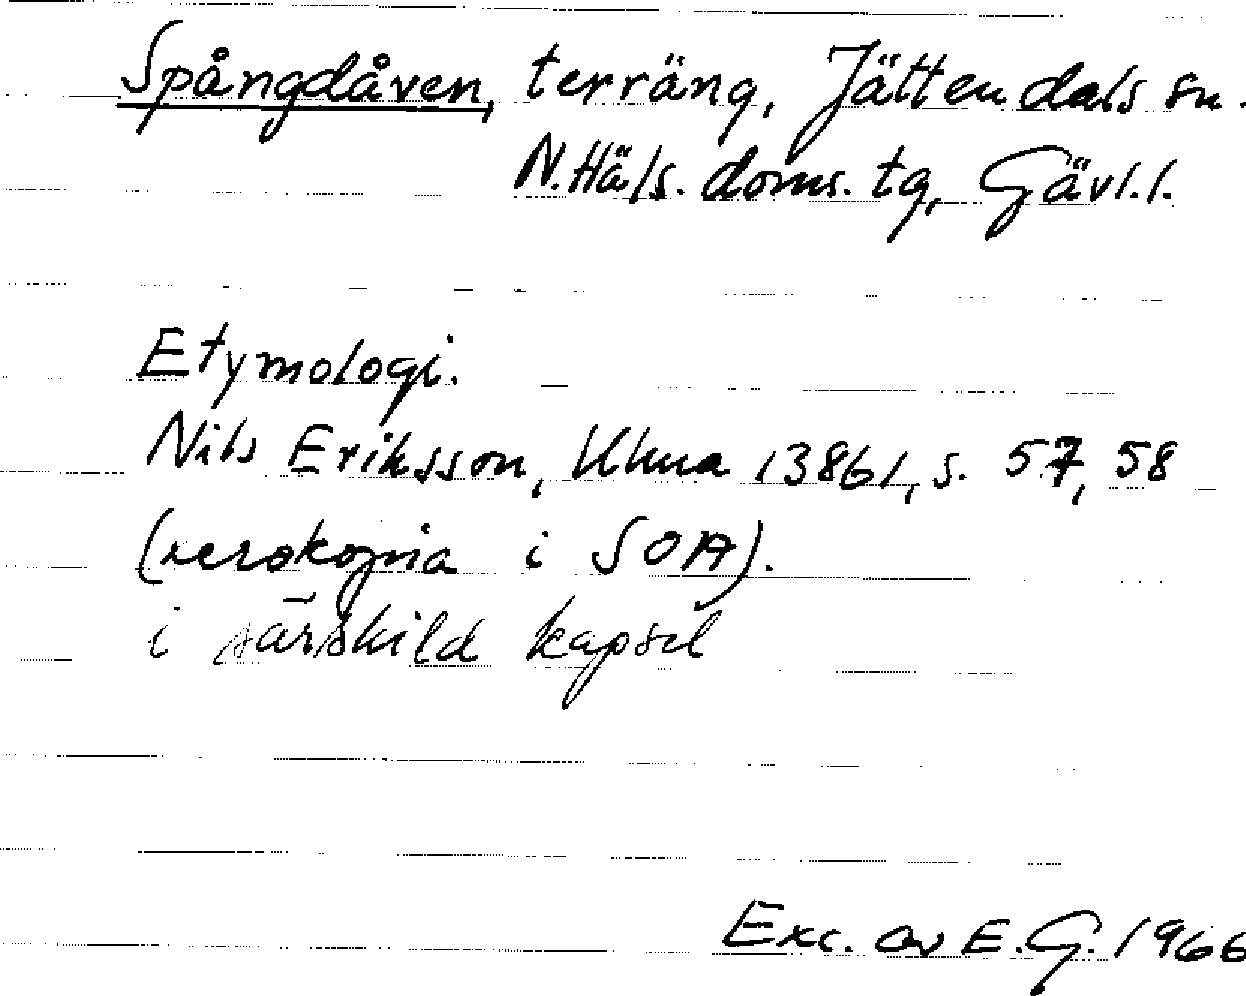 Spångdåven, terräng, Jättendals sn.
N.Häls. doms. tg, Gävl.l.
Etymologi.
Nils Eriksson, Ulma 13861, s. 57, 58
(xerokopia i SOA).
i särskild kapsel
Exc. av E.G. 1966